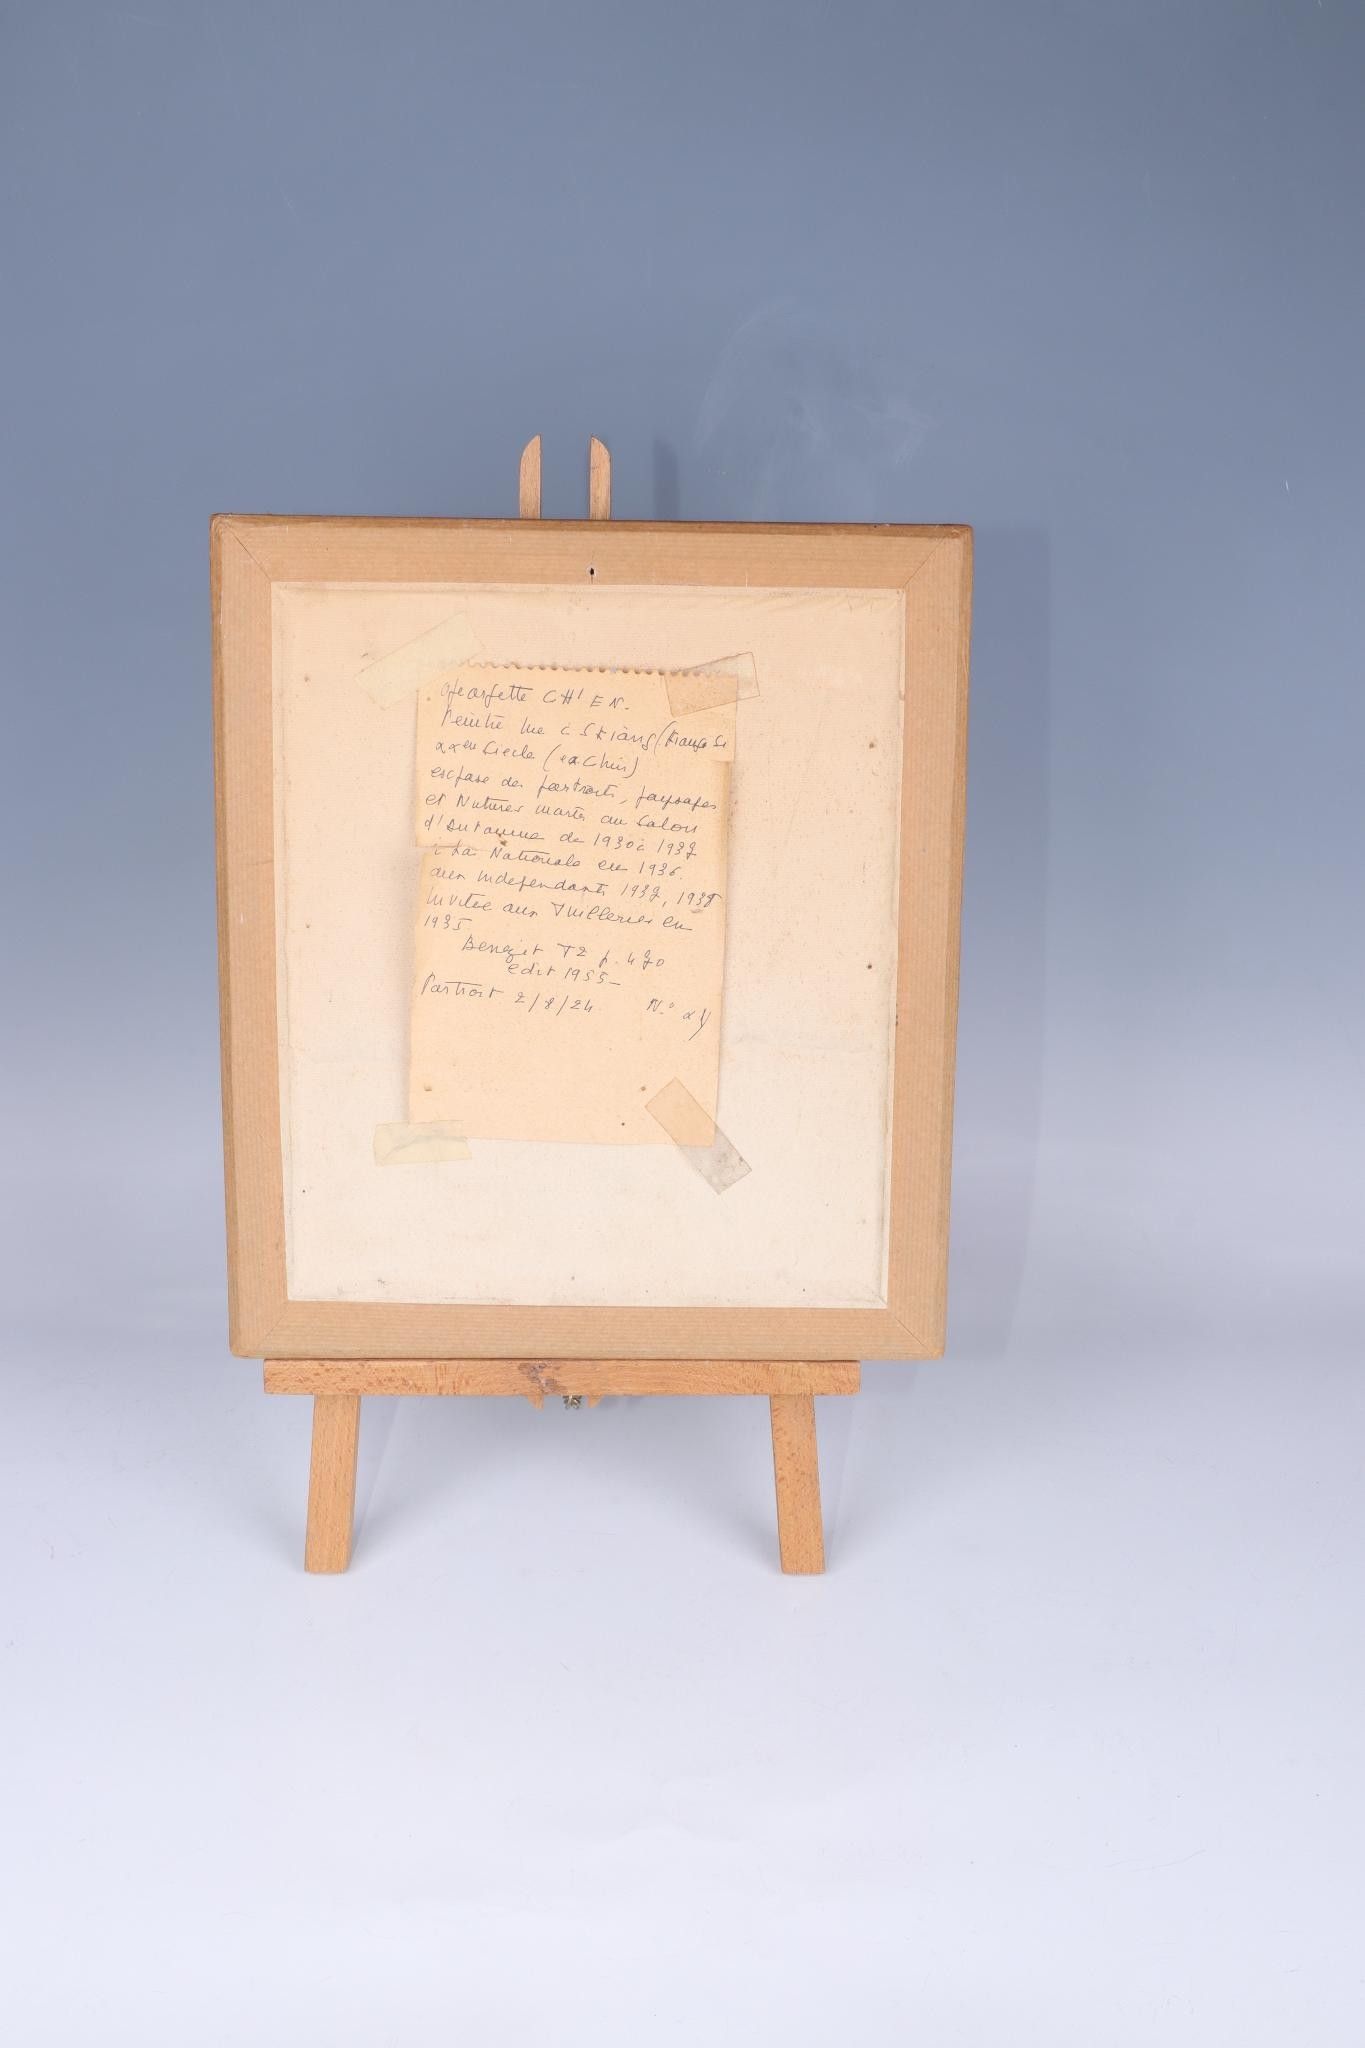 Georgette CH'EN.
Peintre née à Skiàng (Kiangsi
XXeu Siecle (ex Chin)
expose des portraits, paysages
et Natures mortes au Salon
d'Automne de 1930 à 1937
à La Nationale en 1936.
aux Independants 1937, 1938
Invitée aux Tuilleries en
1935
Benezit T2 p. 470
edit 1955-
Portrait 2/8/24 N.°